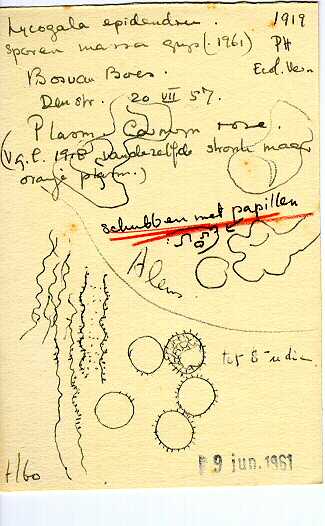 Lycogala epidendrum. 1919
Sporen massa grijs (. 1961) PH
Bos van Boes. Ecol. Vern
Den str. 20 VII 57.
Plasm. Carmijn rose.
(Vgl. 1918 vanzelfde stronk maar
oranje plasm.)
schubben met papillen
Alens
tot 8
H/60
9 jun. 1961